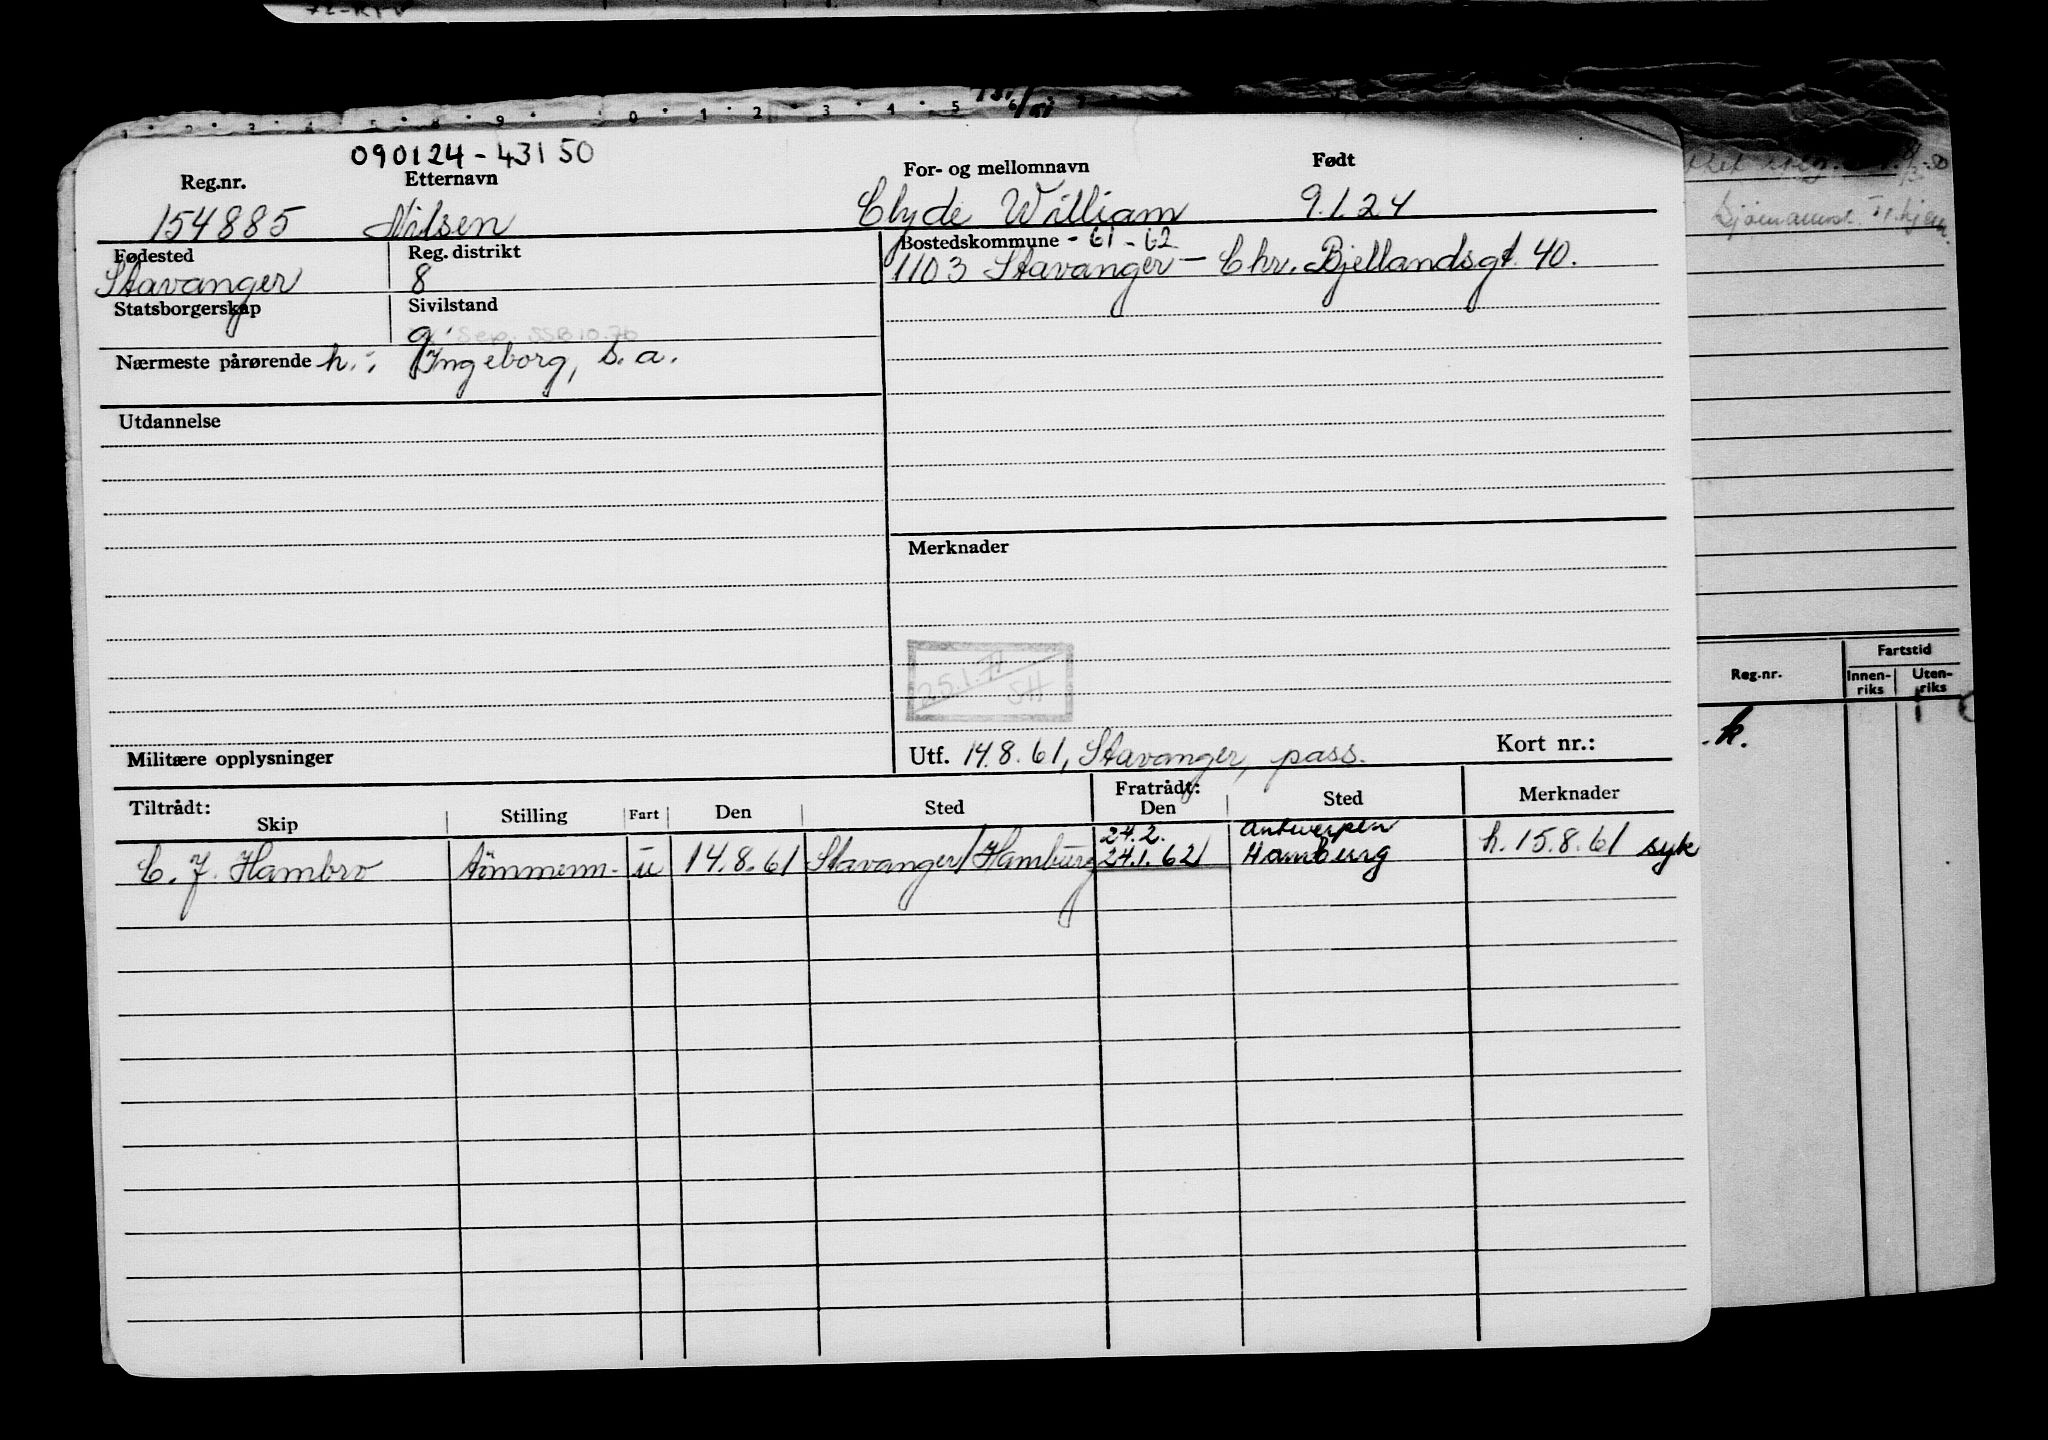 090124-43150
Reg.nr. Etternavn For- og mellomnavn Født
154885 Nilsen Clyde William 9.1.24
Fødested Reg. distrikt Bostedskommune - 61-62
Stavanger 8 1103 Stavanger - Chr. Bjellandsgt. 40.
Statsborgerskap Sivilstand
g. Sep. SSB 10.76
Nærmeste pårørende h.: Ingeborg, s.a.
Utdannelse
Merknader
25.1.71
SH
Militære opplysninger
Utf. 14.8.61, Stavanger, pass. Kort nr.:
Tiltrådt: Fratrådt:
Skip Stilling Fart Den Sted Den Sted Merknader
24.2. Antwerpen
C. J. Hambro tömmerm. u 14.8.61 Stavanger/Hamburg 24.1.62 Hamburg h. 15.8.61 syk
Reg.nr. Fartstid
Innen-riks Uten-riks
k.
0 1 2 3 4 5